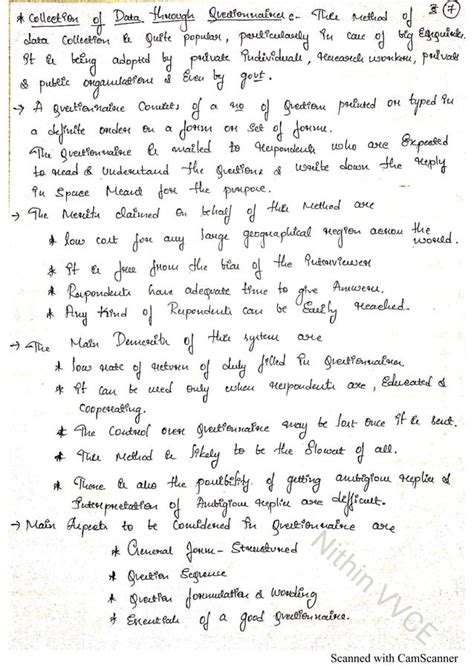 * Collection of Data through Questionnaires :- This Method of
data Collection is Quite popular, particularly in case of big Enquiries.
It is being adopted by private Individuals, research workers, private
& public organisations & Even by govt.
→ A Questionnaire Consists of a no of Question printed or typed in
a definite order on a form or set of forms.
The Questionnaire is mailed to respondents who are Expected
to read & Understand the Questions & write down the reply
in Space Meant for the purpose.
→ The Merits claimed on behalf of this Method are
* low cost for any large geographical region across the
world.
* It is free from the bias of the Interviewer
* Respondents have adequate time to give Answers.
* Any kind of Respondents can be Easily reached.
→ The Main Demerits of this system are
* low rate of return of duly filled in Questionnaires
* It can be used only when respondents are, Educated &
Cooperating.
* The Control over Questionnaire may be lost once it is sent.
* This Method is likely to be the Slowest of all.
* There is also the possibility of getting ambigious replies &
Interpretation of Ambigious replies are difficult.
→ Main Aspects to be Considered in Questionnaire are
* General form - Structured
* Question Sequence
* Question formulation & Wording
* Essentials of a good Questionnaire.
Nithin VVCE
Scanned with CamScanner